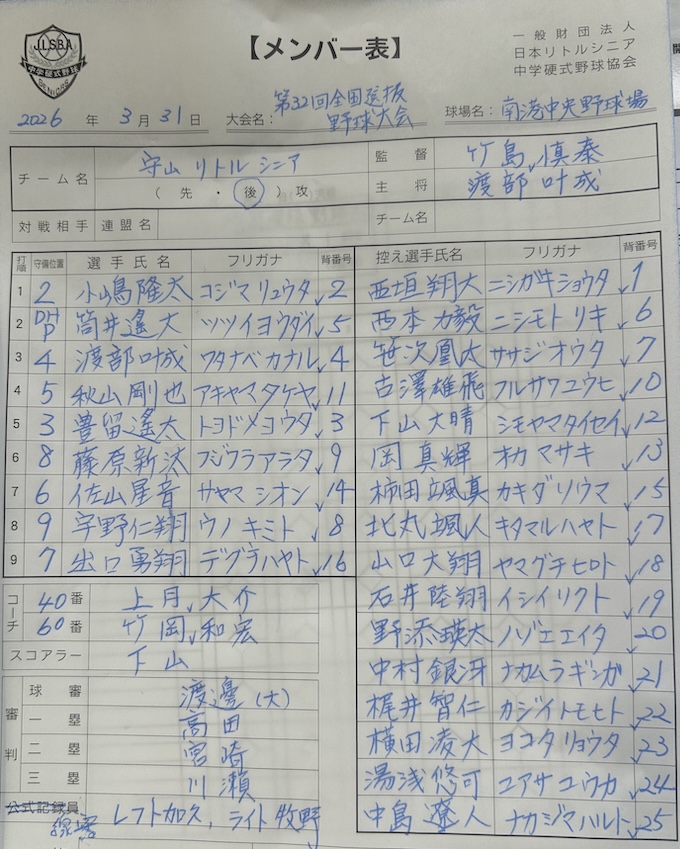 J.L.S.B.A
中学硬式野球
【メンバー表】
一般財団法人
日本リトルシニア
中学硬式野球協会
2026 年 3月31日 大会名: 第32回全国選抜野球大会 球場名: 南港中央野球場
チーム名 守山リトルシニア
(先・後)攻
監督 竹島 慎泰
主将 渡部 叶成
対戦相手 連盟名 チーム名
打順 守備位置 選手氏名 フリガナ 背番号
1 2 小嶋隆太 コジマリュウタ 2
2 DH P 筒井遙大 ツツイヨウダイ 5
3 4 渡部叶成 ワタナベカナル 4
4 5 秋山剛也 アキヤマタケヤ 11
5 3 豊留遙太 トヨドメヨウタ 3
6 8 藤原新汰 フジワラアラタ 9
7 6 佐山星音 サヤマシオン 14
8 9 宇野仁翔 ウノキミト 8
9 7 出口勇翔 デグチハヤト 16
控え選手氏名 フリガナ 背番号
西垣翔大 ニシガキショウタ 1
西本力毅 ニシモトリキ 6
笹次凰太 ササジオウタ 7
古澤雄飛 フルサワユウヒ 10
下山大晴 シモヤマタイセイ 12
岡真輝 オカマサキ 13
柿田颯真 カキダソウマ 15
北丸颯人 キタマルハヤト 17
山口大翔 ヤマグチヒロト 18
石井陸翔 イシイリクト 19
野添瑛太 ノゾエエイタ 20
中村銀冴 ナカムラギンガ 21
梶井智仁 カジイトモヒト 22
横田凌大 ヨコタリョウタ 23
湯浅悠可 ユアサユウカ 24
中島遼人 ナカジマハルト 25
コーチ 40番 上月 大介
60番 竹岡 和宏
スコアラー 下山
審判 球審 渡邊(大)
一塁 高田
二塁 宮崎
三塁 川瀬
公式記録員
線審 レフト加久、ライト牧野